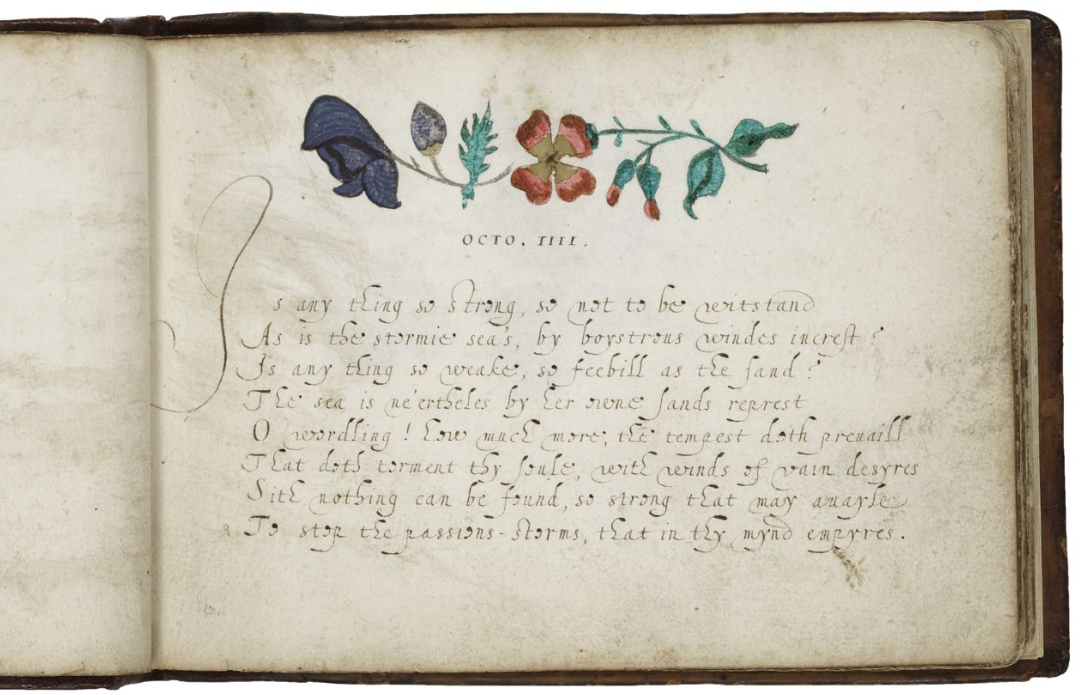 9
OCTO. IIII.
Is any thing so strong, so not to be witstand
As is the stormie sea's, by boystrous windes increst?
Is any thing so weake, so feebill as the sand?
The sea is ne'ertheles by her owne sands represt
O wordling! how much more, the tempest doth preuaill
That doth torment thy soule, with winds of vain desyres
Sith nothing can be found, so strong that may auayle
To stop the passions-storms, that in thy mynd empyres.